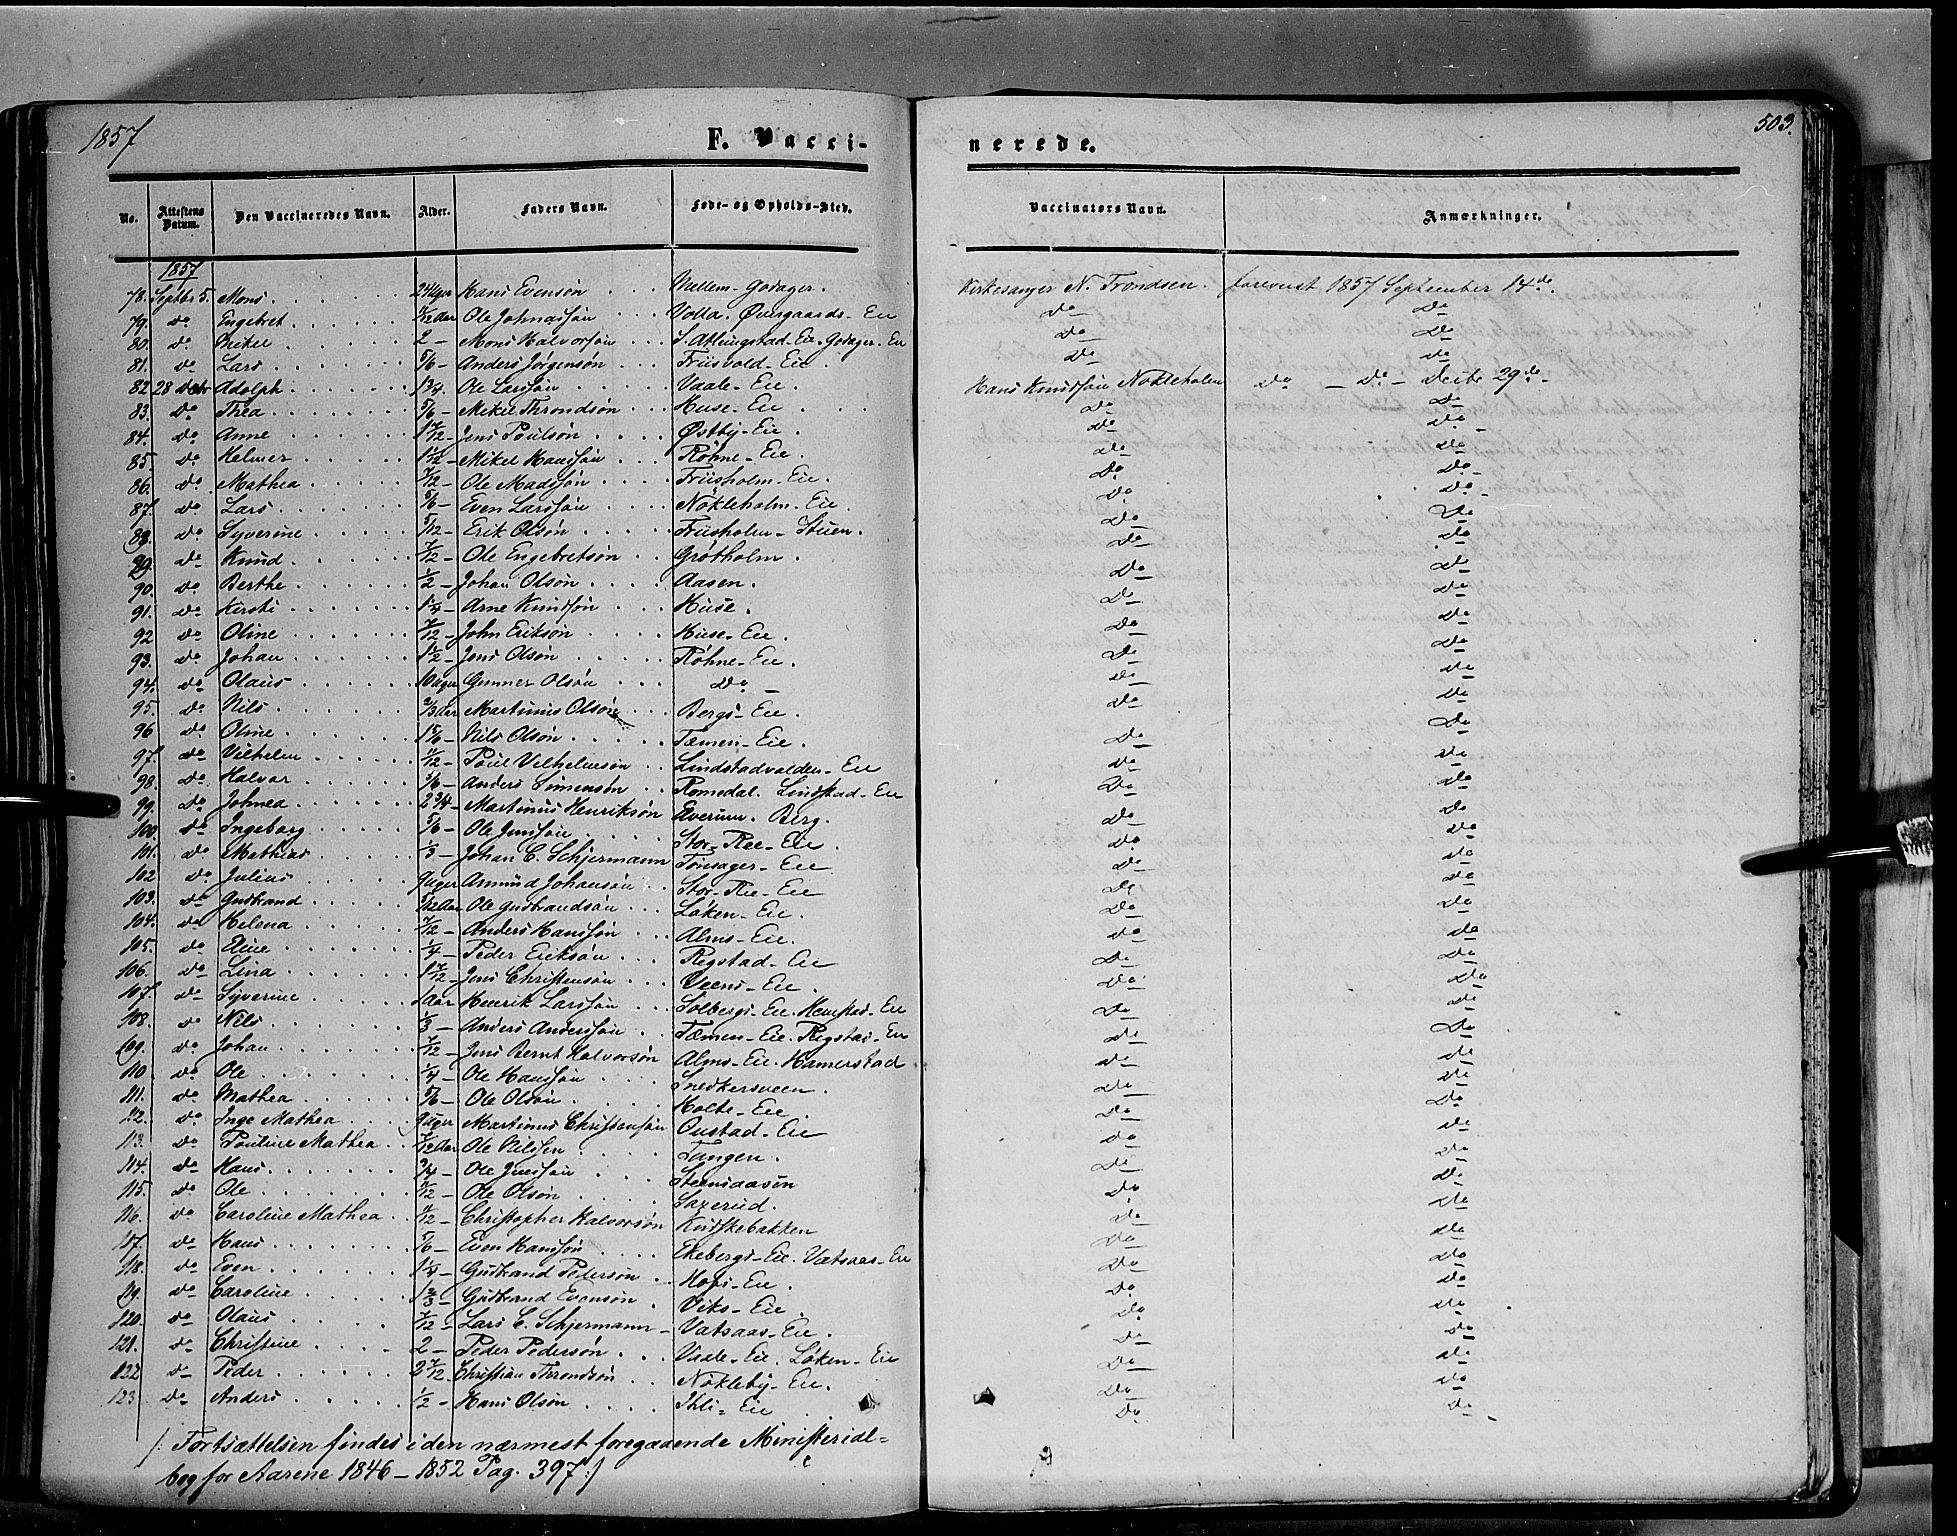 1857
503.
F. Vacci-
nerede.
No. Attestens Datum. Den Vaccineredes Navn. Alder. Faders Navn. Føde- og Opholds-Sted. Vaccinators Navn. Anmærkninger.
1857
78. Septbr 5. Mons 24 Uger Hans Evensøn Mellem-Godager. Kirkesanger N. Trondsen. forevist 1857 September 14de.
79. do Engebret Aar Ole Johnassøn Volla. Øvergaards-Eie do do
80. do Mikel 2 - Mons Halvorsøn S. Atlungstad-Eie. Godager-Eie do do
81. do Lars 5/6 - Anders Jørgensøn Friisvold-Eie. do do
82 28 Adolph 1 3/4 - Ole Larssøn Vaale-Eie. Hans Knudsøn Nökleholm do - do - 29de
83. do Thea 5/6 - Mikel Throndsøn Huse-Eie do do
84. do Anne 1 7/12 - Jens Poulsøn Østby-Eie. do do
85. do Helmer 1 1/12 - Mikel Hanssøn Röhne-Eie. do do
86. do Mathea 7/12 - Ole Madssøn Friisholm-Eie. do do
87. do Lars 5/6 - Even Larssøn Nökleholm-Eie. do do
88. do Syverine 5/12 - Erik Olsøn Friisholm-Stuen. do do
89. do Knud 7/12 - Ole Engebretsøn Grötholm. do do
90. do Berthe 1/2 - Johan Olsøn Aasen. do do
91. do Kirsti 1 1/4 - Arne Knudsøn Huse. do do
92 do Oline 7/12 - John Eriksøn Huse-Eie. do do
93. do Johan 1 1/2 - Jens Olsøn Röhne-Eie. do do
94. do Olaus 10 Uger Gunner Olsøn do - do do
95. do Nils 2/3 Aar Martinus Olsøn Bergs-Eie. do do
96 do Oline 1 5/6 - Nils Olsøn Tæmen-Eie. do do
97. do Vilhelm 1/12 - Poul Vilhelmsøn Lindstadvolden-Eie do do
98. do Halvor 5/6 - Anders Simensøn Romedal. Lindstad-Eie do do
99. do Johnea 2 3/4 - Martinus Henriksøn Elverum. Berg. do do
100. do Ingeborg 5/6 - Ole Jenssøn Stor-Ree-Eie. do do
101. do Mathias 1/3 - Johan C. Schjermann Tönsager-Eie do do
102 do Julius 9 Uger Amund Johansøn Stor-Ree-Eie do do
103. do Gudbrand Aar Ole Gudbrandsøn Løken-Eie. do do
104. do Helena 7/12 - Anders Hanssøn Alms-Eie. do do
105. do Eline 1/4 - Peder Eriksøn Rygstad-Eie do do
106. do Lina 1 7/12 - Jens Christensøn Veens-Eie. do do
107. do Syverine 1 Aar Henrik Larssøn Solbergs-Eie. Hemstad-Eie do do
108. do Nils 1/3 - Anders Anderssøn Tæmen-Eie. Rygstad-Eie do do
109. do Johan 7/12 - Jens Bernt Halvorsøn Alms-Eie. Hamerstad do do
110 do Ole 1/4 - Ole Hanssøn Snedkersveen. do do
111. do Mathea 5/6 - Ole Olsøn Holte-Eie. do do
112. do Inge Mathea 9 Uger Martinus Christensøn Oustad-Eie do do
113. do Pouline Mathea 7/12 Aar Ole Nilsen Tangen. do do
114. do Hans 3/4 - Ole Jenssøn Steensaasen do do
115. do Ole 7/12 - Ole Olsøn Saxerud. do do
116. do Caroline Mathea 7/12 - Christopher Halvorsøn Kuskebakken do do
117. do Hans 5/6 - Even Hanssøn Ekebergs-Eie. Vatsaas-Eie do do
118. do Even 1 1/4 - Gudbrand Pedersøn Hofs-Eie. do do
119. do Caroline 1 2/3 - Gudbrand Evensøn Viks-Eie. do do
120. do Olaus 7/12 - Lars C. Schjermann - Vatsaas-Eie. do do
121. do Christine 2 - Peder Pedersøn Vaale-Eie. Løken-Eie do do
122 do Peder 2 7/12 - Christian Throndsøn Nökleby-Eie. do do
123 do Anders 1/2 - Hans Olsøn Ihli-Eie do do
/: Fortsættelsen findes i den nærmest foregaaende Ministerial-
bog for Aarene 1846-1852 Pag. 397 :/